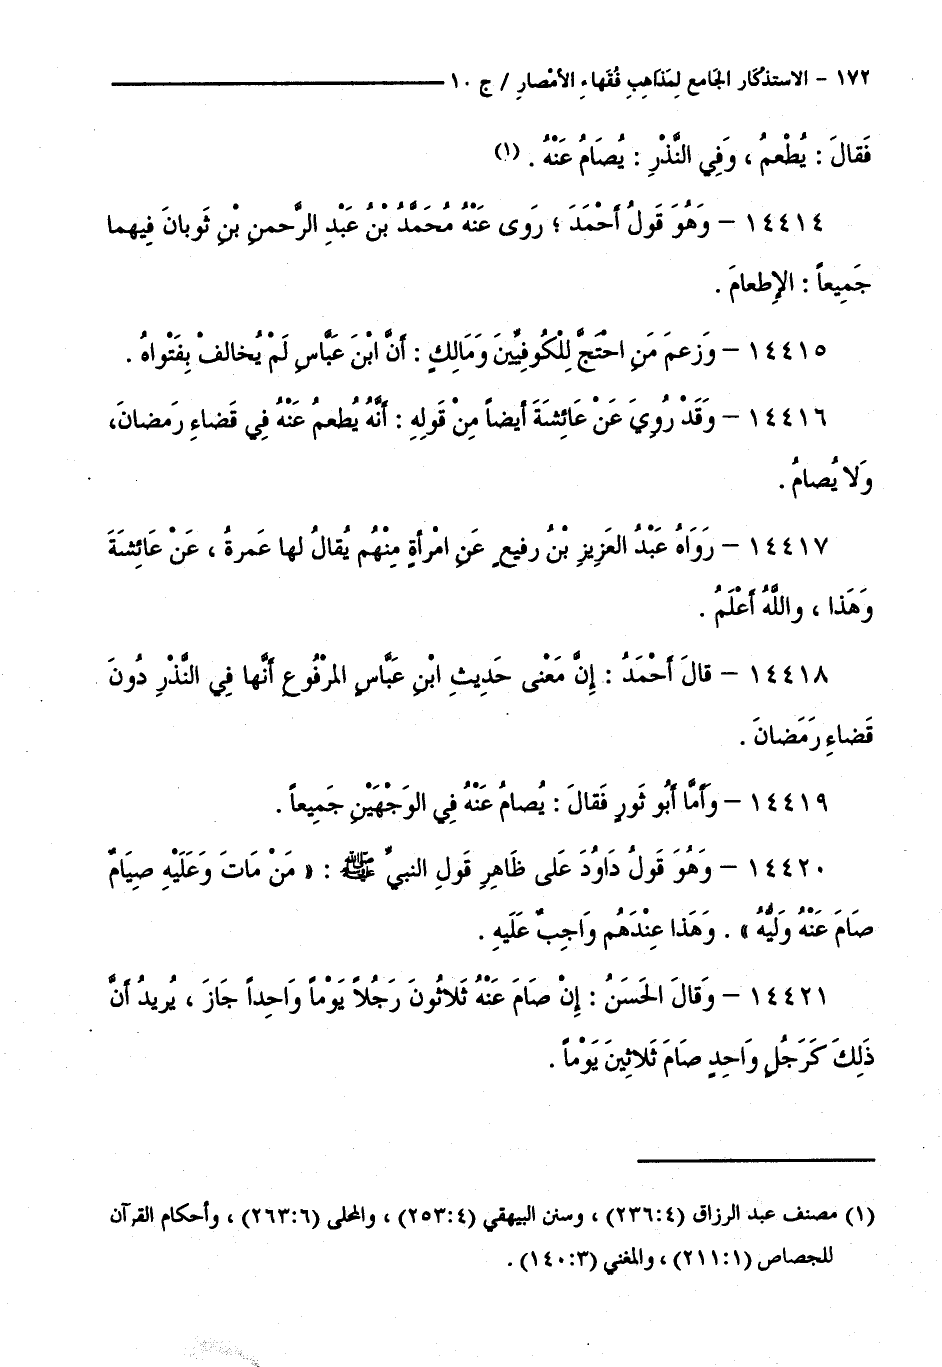 ١٧٢ - الاستذكار الجَامع لِمَذاهِبِ فُقَهاءِ الأمْصارِ / ج ١٠
فَقالَ : يُطْعمُ ، وَفِي النَّذْرِ : يُصَامُ عَنْهُ . (١)
١٤٤١٤ - وَهُوَ قَولُ أحْمَدَ ؛ رَوى عَنْهُ مُحَمَّدُ بْنُ عَبْدِ الرَّحمنِ بْنِ ثَوبانَ فِيهما
جَمِيعاً : الإِطعامَ .
١٤٤١٥ - وَزعمَ مَنِ احْتَجَّ لِلْكُوفِيِّينَ وَمَالِكٍ : أَنَّ ابْنَ عَبَّاسٍ لَمْ يُخالفْ بِفَتْواهُ .
١٤٤١٦ - وَقَدْ رُوِيَ عَنْ عَائِشَةَ أيضاً مِنْ قَولِهِ : أَنَّهُ يُطعمُ عَنْهُ فِي قَضاءِ رَمضانَ،
وَلا يُصامُ .
١٤٤١٧ - رَوَاهُ عَبْدُ العَزِيزِ بْنُ رفيعٍ عَنِ امْرأةٍ مِنْهُم يُقالُ لها عَمرةُ ، عَنْ عَائِشَةَ
وَهَذا ، واللَّهُ أعْلَمُ .
١٤٤١٨ - قالَ أحْمَدُ : إِنَّ مَعْنى حَدِيثِ ابْنِ عَبَّاسٍ المرْفُوعِ أنَّها فِي النَّذْرِ دُونَ
قَضاءِ رَمَضانَ .
١٤٤١٩ - وَأمَّا أبُو ثَورٍ فَقالَ : يُصامُ عَنْهُ فِي الوَجْهَيْنِ جَمِيعاً .
١٤٤٢٠ - وَهُوَ قَولُ دَاوُدَ عَلى ظَاهِرِ قَولِ النبيِّ ﷺ : « مَنْ مَاتَ وَعَلَيْهِ صِيَامٌ
صَامَ عَنْهُ وَلَيُّهُ » . وَهَذا عِنْدَهُم وَاجِبٌ عَلَيهِ .
١٤٤٢١ - وَقَالَ الحَسَنُ : إِنْ صَامَ عَنْهُ ثَلاثُونَ رَجُلاً يَوْماً وَاحِداً جَازَ ، يُريدُ أنَّ
ذَلِكَ كَرَجُلٍ وَاحِدٍ صَامَ ثَلاثِينَ يَوْماً .
(١) مصنف عبد الرزاق (٢٣٦:٤) ، وسنن البيهقي (٢٥٣:٤) ، والمحلى (٢٦٣:٦) ، وأحكام القرآن
للجصاص (٢١١:١) ، والمغني (١٤٠:٣) .